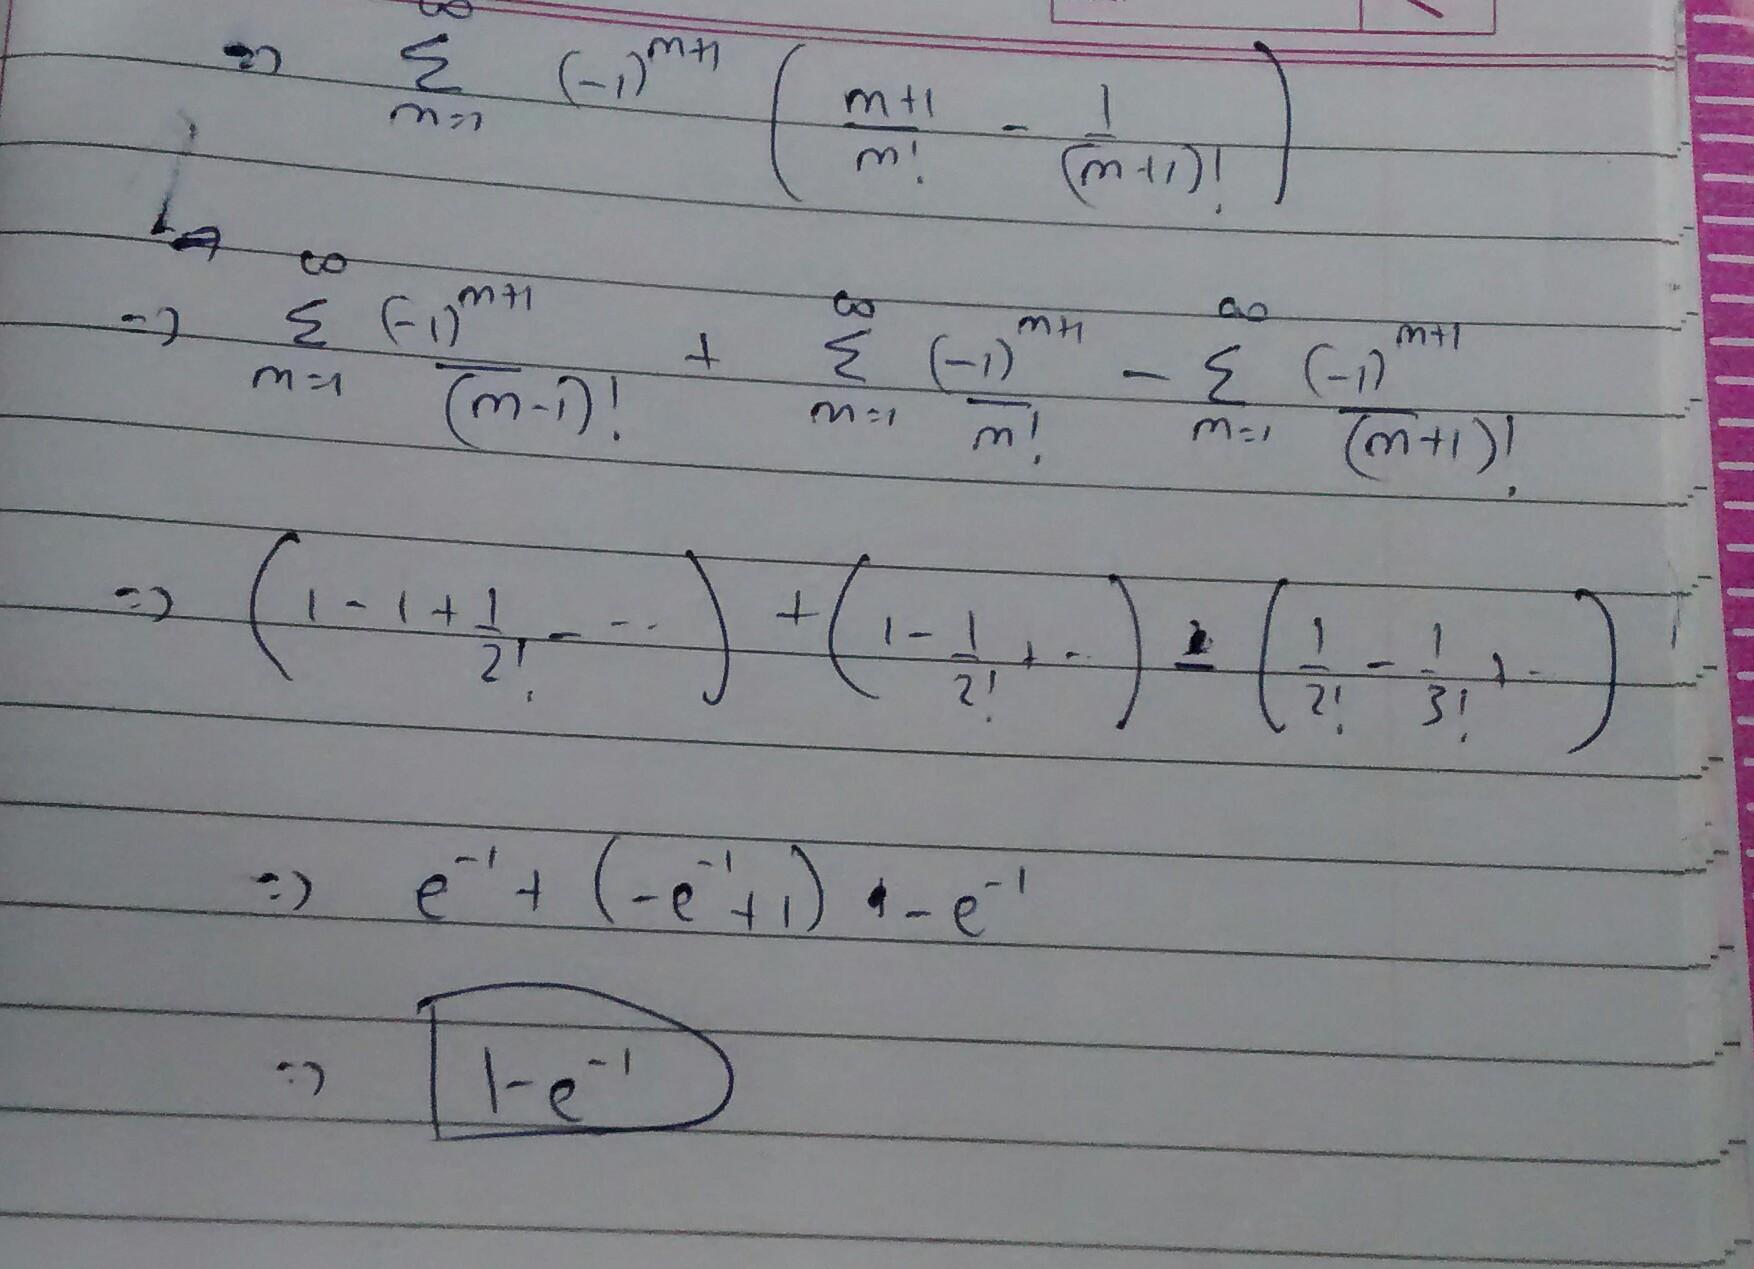 => ∞∑m=1 (-1)^{m+1} ( \frac{m+1}{m!} - \frac{1}{(m+1)!} )
=> ∞∑m=1 \frac{(-1)^{m+1}}{(m-1)!} + ∞∑m=1 \frac{(-1)^{m+1}}{m!} - ∞∑m=1 \frac{(-1)^{m+1}}{(m+1)!}
=> ( 1 - 1 + \frac{1}{2!} - -- ) + ( 1 - \frac{1}{2!} + -- ) - ( \frac{1}{2!} - \frac{1}{3!} + -- )
=> e^{-1} + (-e^{-1} + 1) - e^{-1}
=> 1 - e^{-1}